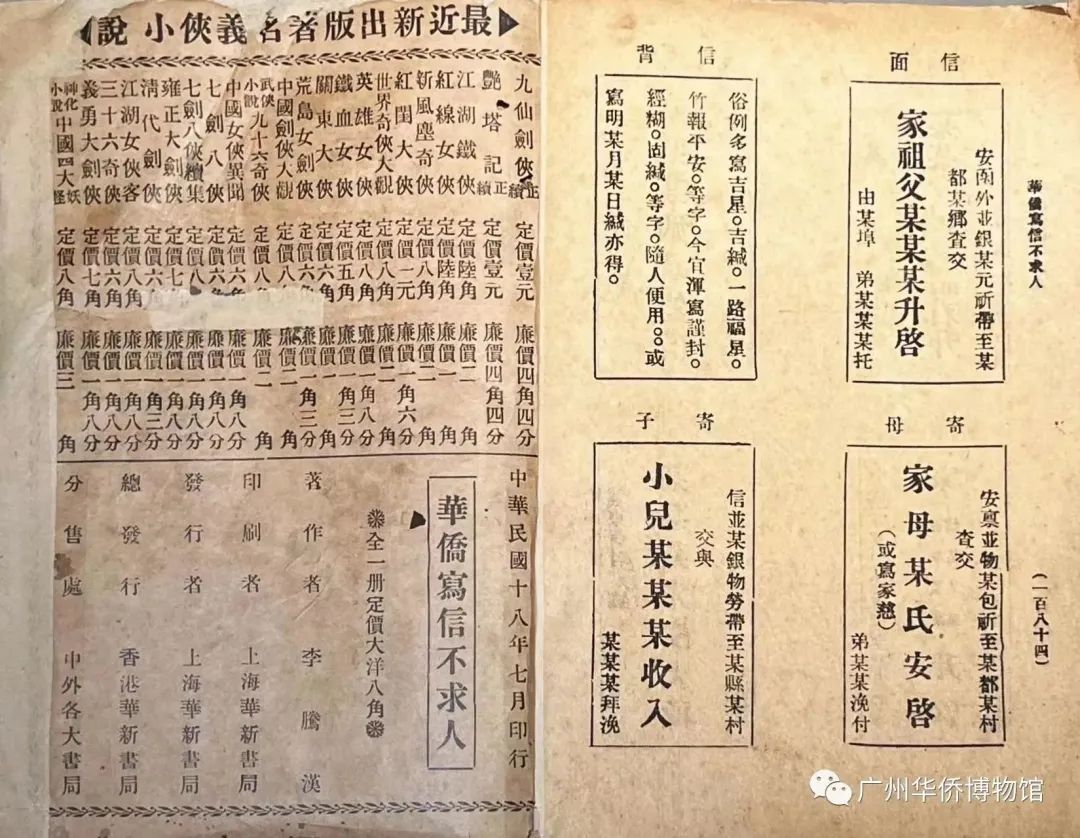 華僑寫信不求人
(一百八十四)
信面
安函外並銀某元祈帶至某
都某鄉查交
家祖父某某某升啓
由某埠 弟某某某托
信背
俗例多寫吉星。吉緘。一路福星。
竹報平安。等字。今宜渾寫謹封。
經糊。固緘。等字。隨人便用。。或
寫明某月某日緘亦得。
寄母
安稟並物某包祈至某都某村
查交
家母某氏安啓
(或寫家慈)
弟某某浼付
寄子
信並某銀物勞帶至某縣某村
交與
小兒某某某收入
某某某拜浼
最近新出版著名義俠小說
九仙劍俠正續 定價壹元 廉價四角四分
艷塔記正續 定價壹元 廉價四角四分
江湖鐵俠 定價陸角 廉價二角
紅線女俠 定價陸角 廉價二角
新風塵奇俠 定價八角 廉價二角
紅閨大俠 定價一元 廉價一角六分
世界奇俠大觀 定價八角 廉價二角
英雄女俠 定價八角 廉價一角八分
鐵血女俠 定價五角 廉價一角三分
關東大俠 定價六角 廉價二角
荒島女劍俠 定價六角 廉價一角三分
中國劍俠大觀 定價八角 廉價二角
武俠小說九十六奇俠 定價八角 廉價二角
中國女俠異聞 定價六角 廉價一角八分
七劍八俠 定價六角 廉價一角八分
七劍八俠續集 定價八角 廉價一角八分
雍正大劍俠 定價七角 廉價一角八分
清代劍俠 定價六角 廉價一角三分
江湖女俠客 定價八角 廉價一角八分
三十六奇俠 定價六角 廉價一角八分
義勇大劍俠 定價七角 廉價一角八分
神化小說中國四大妖怪 定價八角 廉價三角
中華民國十八年七月印行
華僑寫信不求人
全一册定價大洋八角
著作者 李騰漢
印刷者 上海華新書局
發行者 上海華新書局
總發行 香港華新書局
分售處 中外各大書局
广州华侨博物馆